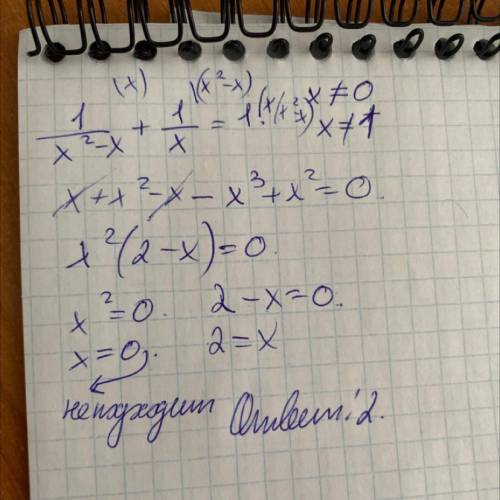 (x) (x²-x)
1/(x²-x) + 1/x = 1 (x(x²-x) x≠0
x≠1
x+x²-x-x³+x²=0.
x²(2-x)=0.
x²=0. 2-x=0.
x=0. 2=x
не подходит Ответ: 2.